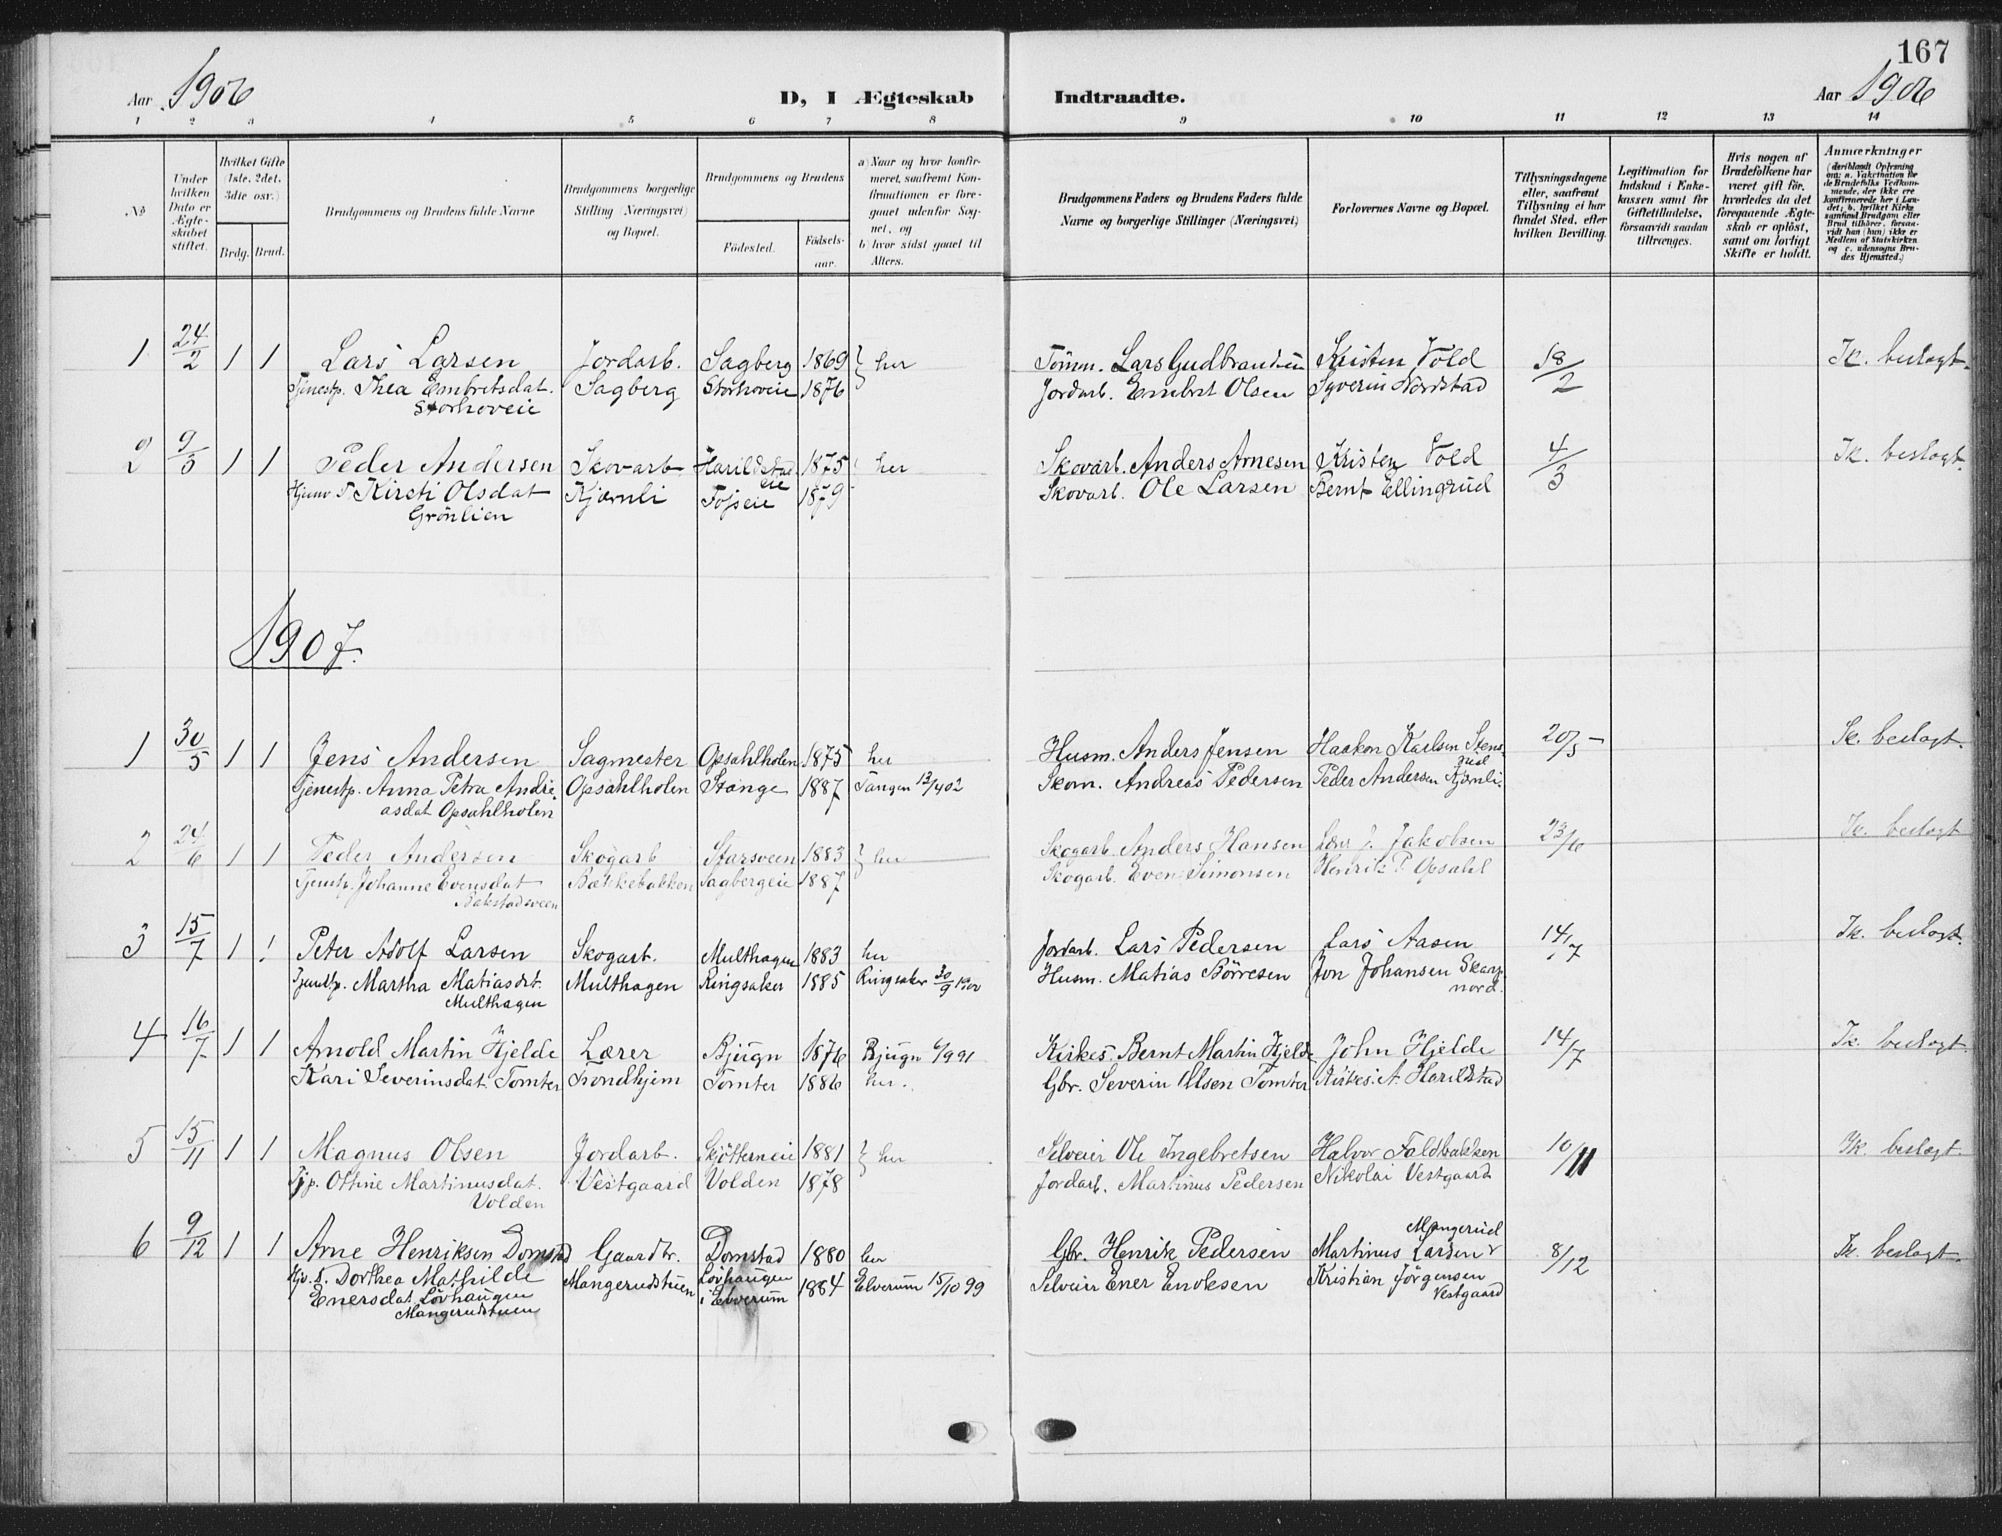 167
Aar 1906 D, I Ægteskab Indtraadte. Aar 1906
1 2 3 4 5 6 7 8 9 10 11 12 13 14
No
Under hvilken Dato er Ægteskabet stiftet.
Hvilket Gifte (1ste, 2det, 3die osv.)
Brdg. Brud.
Brudgommens og Brudens fulde Navne
Brudgommens borgerlige Stilling (Næringsvei) og Bopæl.
Brudgommens og Brudens
Fødested. Fødselsaar.
a) Naar og hvor konfirmeret, saafremt Konfirmationen er foregaaet udenfor Sognet, og
b) hvor sidst gaaet til Alters.
Brudgommens Faders og Brudens Faders fulde Navne og borgerlige Stillinger (Næringsvei)
Forlovernes Navne og Bopæl.
Tillysningsdagene eller, saafremt Tillysning ei har fundet Sted, efter hvilken Bevilling.
Legitimation for Indskud i Enkekassen samt for Giftetilladelse, forsaavidt saadan tiltrænges.
Hvis nogen af Brudefolkene har været gift før, hvorledes da det foregaaende Ægteskab er opløst, samt om lovligt Skifte er holdt.
Anmærkninger
(deriblandt Oplysning om: a. Vakcination for de Brudefolks Vedkommende, der ikke ere konfirmerede her i Landet; b. hvilket Kirkesamfund Brudgom eller Brud tilhører, forsaavidt han (hun) ikke er Medlem af Statskirken og c. udensogns Brudes Hjemsted.)
1 24/2 1 1 Lars Larsen Jordarb. Sagberg 1869 } her Tömm. Lars Gudbrandsen Kristen Vold 18/2 Ik. beslægt.
Tjenestp. Thea Embretsdat. Sagberg Storhoveie 1876 Jordarb. Embret Olsen Syverin Nordstad
Storhoveie
2 9/3 1 1 Peder Andersen Skovarb. Harildstad 1875 her Skovarb. Anders Arnesen Kristen Vold 4/3 Ik. beslægt.
eie
Kirsti Olsdat Kjærnli Töjseie 1879 Skovarb. Ole Larsen Bernt Ellingrud
Grönlien
1907.
1 30/5 1 1 Jens Andersen Sagmester Opsahlholen 1875 her Husm. Anders Jensen Haakon Karlsen Stens 20/5 Ik. beslægt.
rud
Tjenestp. Anna Petra Andre Opsahlholen Stange 1887 Tangen 13/4 02 Skom. Andreas Pedersen Peder Andersen Kjærnli.
asdat Opsahlholen
2 24/6 1 1 Peder Andersen Skogarb Starsveen 1883 } her Skogarb. Anders Hansen Jakobsen 23/6 Ik. beslægt
Tjenstp. Johanne Evensdat Bækkebakken Sagbergeie 1887 Skogarb. Even Simonsen Henrik P. Opsahl
Bakstadsveen
3 15/7 1 1 Peter Adolf Larsen Skogarb. Multhagen 1883 her Jordarb. Lars Pedersen Lars Aasen 14/7 Ik. beslægt.
Tjenstp. Martha Matiasdt. Multhagen Ringsaker 1885 Ringsaker 30/9 1900 Husm. Matias Börresen Jon Johansen Skarp
Multhagen nord.
4 16/7 1 1 Arnold Martin Hjelde Lærer Bjugn 1876 Bjugn 6/9 91 Kirkes. Bernt Martin Hjelde John Hjelde 14/7 Ik. beslægt.
Kari Severinsdat. Tomter Trondhjem Tomter 1886 her. Gbr. Severin Olsen Tomter Kirkes. A. Harildstad
5 15/11 1 1 Magnus Olsen Jordarb. Skjötterneie 1881 } her Selveier Ole Ingebretsen Halvor Faldbakken 10/11 Ik. beslægt.
Tjp. Ottine Martinusdat. Vestgaard Volden 1878 Jordarb. Martinus Pedersen Nikolai Vestgaard
Volden
6 9/12 1 1 Arne Henriksen Domstad Gaardbr. Domstad 1880 her Gbr. Henrik Pedersen Martinus Larsen Mangerud 8/12 Ik. beslægt.
Hjv. d. Dorthea Mathilde Mangerudstuen Lövhaugen i Elverum 1884 Elverum 15/10 99 Selveier Ener Enoksen Kristian Jörgensen
Enersdat Lövhaugen Vestgaard
Mangerudstuen